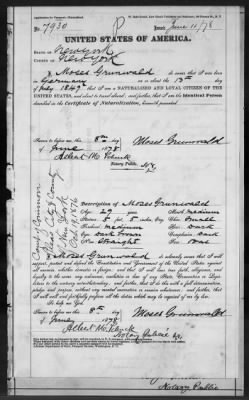 No. 7930
Issued June 11/78
UNITED STATES OF AMERICA.
STATE OF New York
COUNTY OF New York
I, Moses Grunwald do swear that I was born
in Germany on or about the 13th day
of July 1849 that I am a NATURALIZED AND LOYAL CITIZEN OF THE
UNITED STATES, and about to travel abroad; and further, that I am the Identical Person
described in the Certificate of Naturalization, herewith presented.
Sworn to before me, this 8th day
of June 1878
Moses Grunwald
Notary Public. N.Y.
Court of Common
Pleas City & County
of New York
Oct 19, 1876
Description of Moses Grunwald
Age: 29 years
Mouth: medium
Stature: 5 feet 5 inches, Eng.
Chin: Small
Forehead: medium
Hair: Dark
Eyes: Dark brown
Complexion: Dark
Nose: Straight
Face: Oval
I, Moses Grunwald do solemnly swear that I will
support, protect and defend the Constitution and Government of the United States against
all enemies, whether domestic or foreign; and that I will bear true faith, allegiance, and
loyalty to the same, any ordinance, resolution or law of any State, Convention or Legis-
lature to the contrary notwithstanding; and further, that I do this with a full determination,
pledge and purpose, without any mental reservation or evasion whatsoever; and further, that
I will well and faithfully perform all the duties which may be required of me by law.
So help me God.
Sworn to before me, this 8th day
of June 1878
Moses Grunwald
Notary Public N.Y.
Notary Public